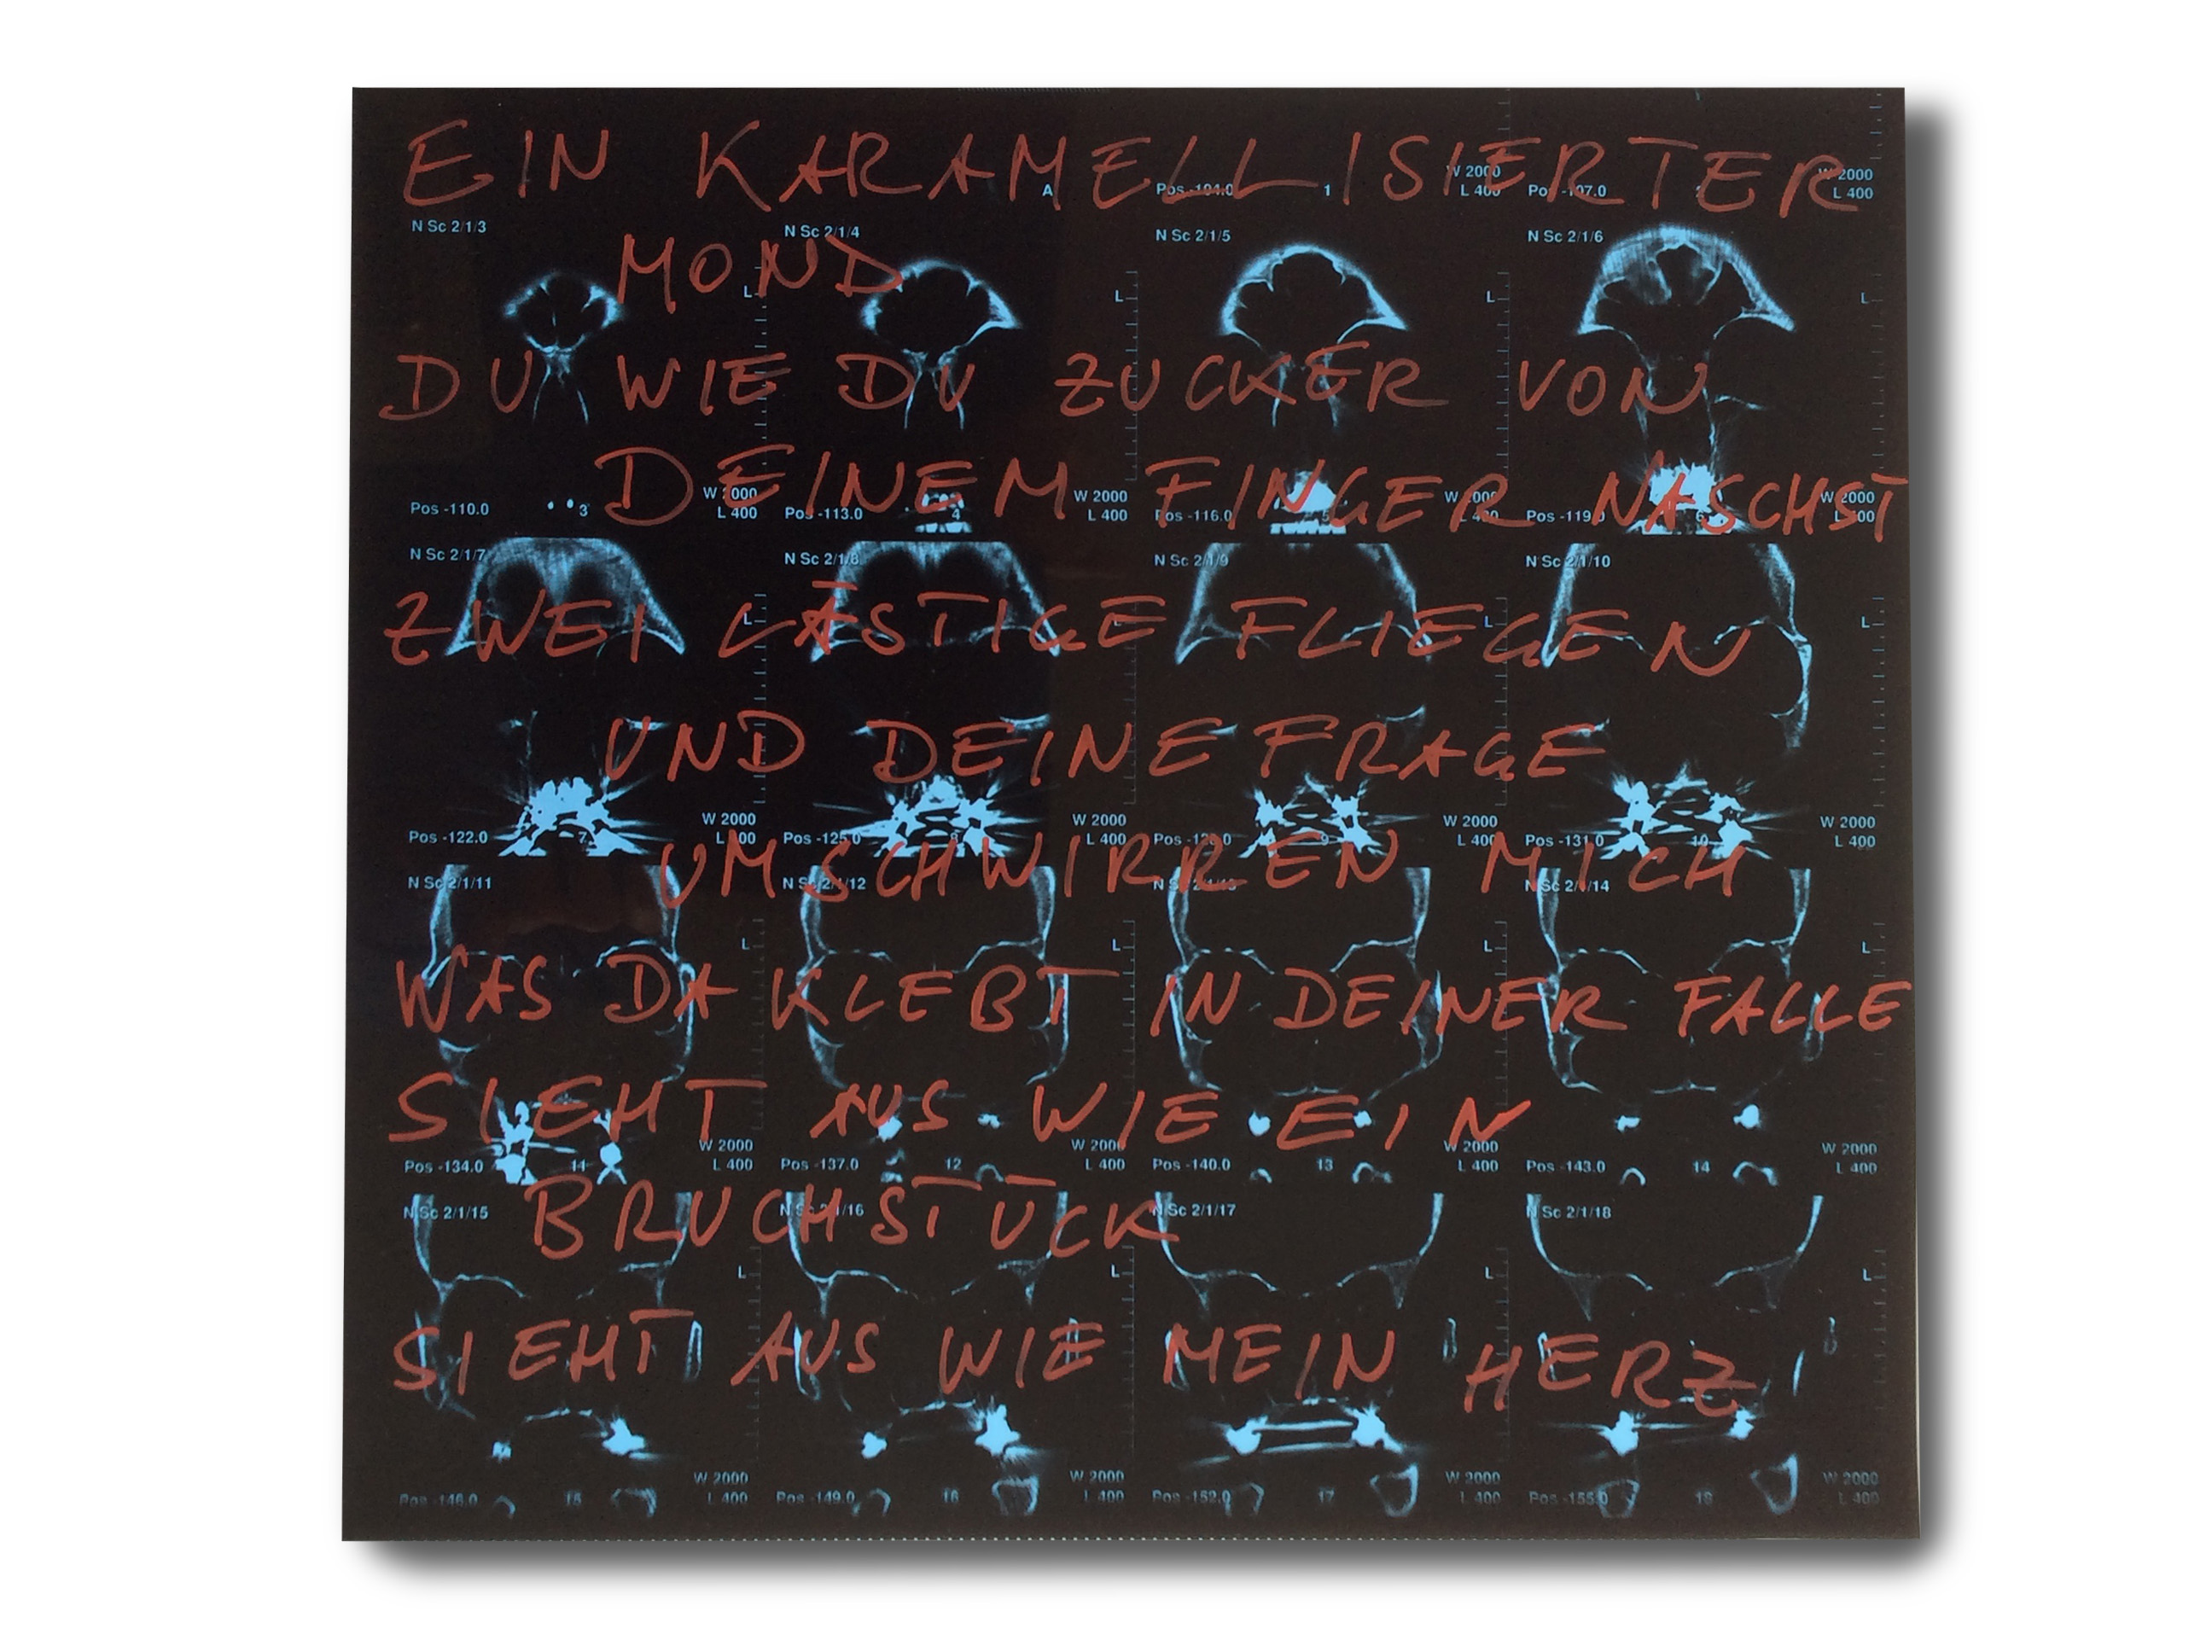 EIN KARAMELLISIERTER
W 2000 W 2000
A Pos -104.0 1 L 400 Pos -107.0 2 L 400
N Sc 2/1/3 N Sc 2/1/4 N Sc 2/1/5 N Sc 2/1/6
MOND
L L L L
DU WIE DU ZUCKER VON
DEINEM FINGER NASCHST
W 2000 W 2000 W 2000 W 2000
Pos -110.0 3 L 400 Pos -113.0 4 L 400 Pos -116.0 5 L 400 Pos -119.0 6 L 400
N Sc 2/1/7 N Sc 2/1/8 N Sc 2/1/9 N Sc 2/1/10
ZWEI LĀSTIGE FLIEGEN
L L L L
UND DEINE FRAGE
W 2000 W 2000 W 2000 W 2000
Pos -122.0 7 L 400 Pos -125.0 8 L 400 Pos -128.0 9 L 400 Pos -131.0 10 L 400
UMSCHWIRREN MICH
N Sc 2/1/11 N Sc 2/1/12 N Sc 2/1/13 N Sc 2/1/14
L L L L
WAS DA KLEBT IN DEINER FALLE
SIEHT AUS WIE EIN
W 2000 W 2000 W 2000 W 2000
Pos -134.0 11 L 400 Pos -137.0 12 L 400 Pos -140.0 13 L 400 Pos -143.0 14 L 400
BRUCHSTŪCK
N Sc 2/1/15 N Sc 2/1/16 N Sc 2/1/17 N Sc 2/1/18
L L L L
SIEHT AUS WIE MEIN HERZ
W 2000 W 2000 W 2000 W 2000
Pos -146.0 15 L 400 Pos -149.0 16 L 400 Pos -152.0 17 L 400 Pos -155.0 18 L 400